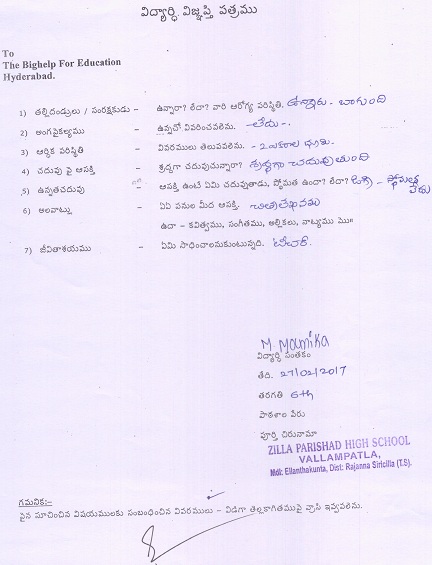 విద్యార్ధి విజ్ఞప్తి పత్రము
To
The Bighelp For Education
Hyderabad.
1) తల్లిదండ్రులు / సంరక్షకుడు – ఉన్నారా? లేదా? వారి ఆరోగ్య పరిస్థితి. ఉన్నారు - బాగుంది
2) అంగవైకల్యము – ఉన్నచో వివరించవలెను. -లేదు-.
3) ఆర్థిక పరిస్థితి – వివరములు తెలుపవలెను.
4) చదువు పై ఆసక్తి – శ్రద్ధగా చదువుచున్నారా? శ్రద్ధగా చదువుతుంది
5) ఉన్నతచదువు – ఆసక్తి ఉంటే ఏమి చదువుతాడు, స్తోమత ఉందా? లేదా?
6) అలవాట్లు – ఏఏ పనుల మీద ఆసక్తి. చిత్రలేఖనము
ఉదా – కవిత్వము, సంగీతము, అల్లికలు, నాట్యము మొ॥
7) జీవితాశయము – ఏమి సాధించాలనుకుంటున్నది. టీచర్.
M Mounika
విద్యార్థి సంతకం
తేది. 27/02/2017
తరగతి 6th
పాఠశాల పేరు
పూర్తి చిరునామా
ZILLA PARISHAD HIGH SCHOOL
VALLAMPATLA,
Mdl: Ellanthakunta, Dist: Rajanna Siricilla (T.S).
గమనిక:-
పైన సూచించిన విషయములకు సంబంధించిన వివరములు – విడిగా తెల్లకాగితముపై వ్రాసి ఇవ్వవలెను.